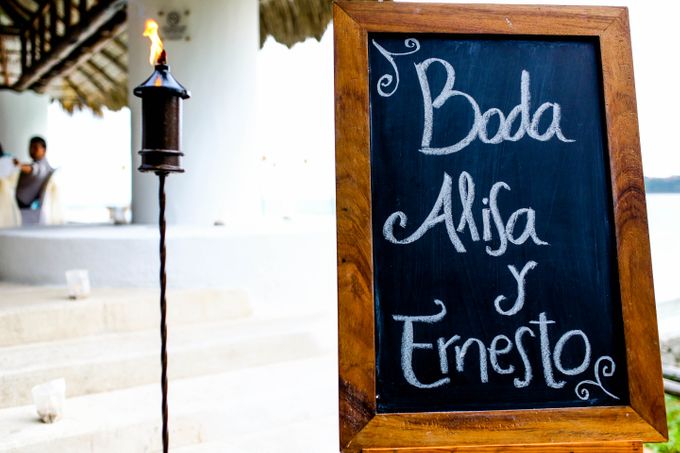 Boda
Alisa
y
Ernesto